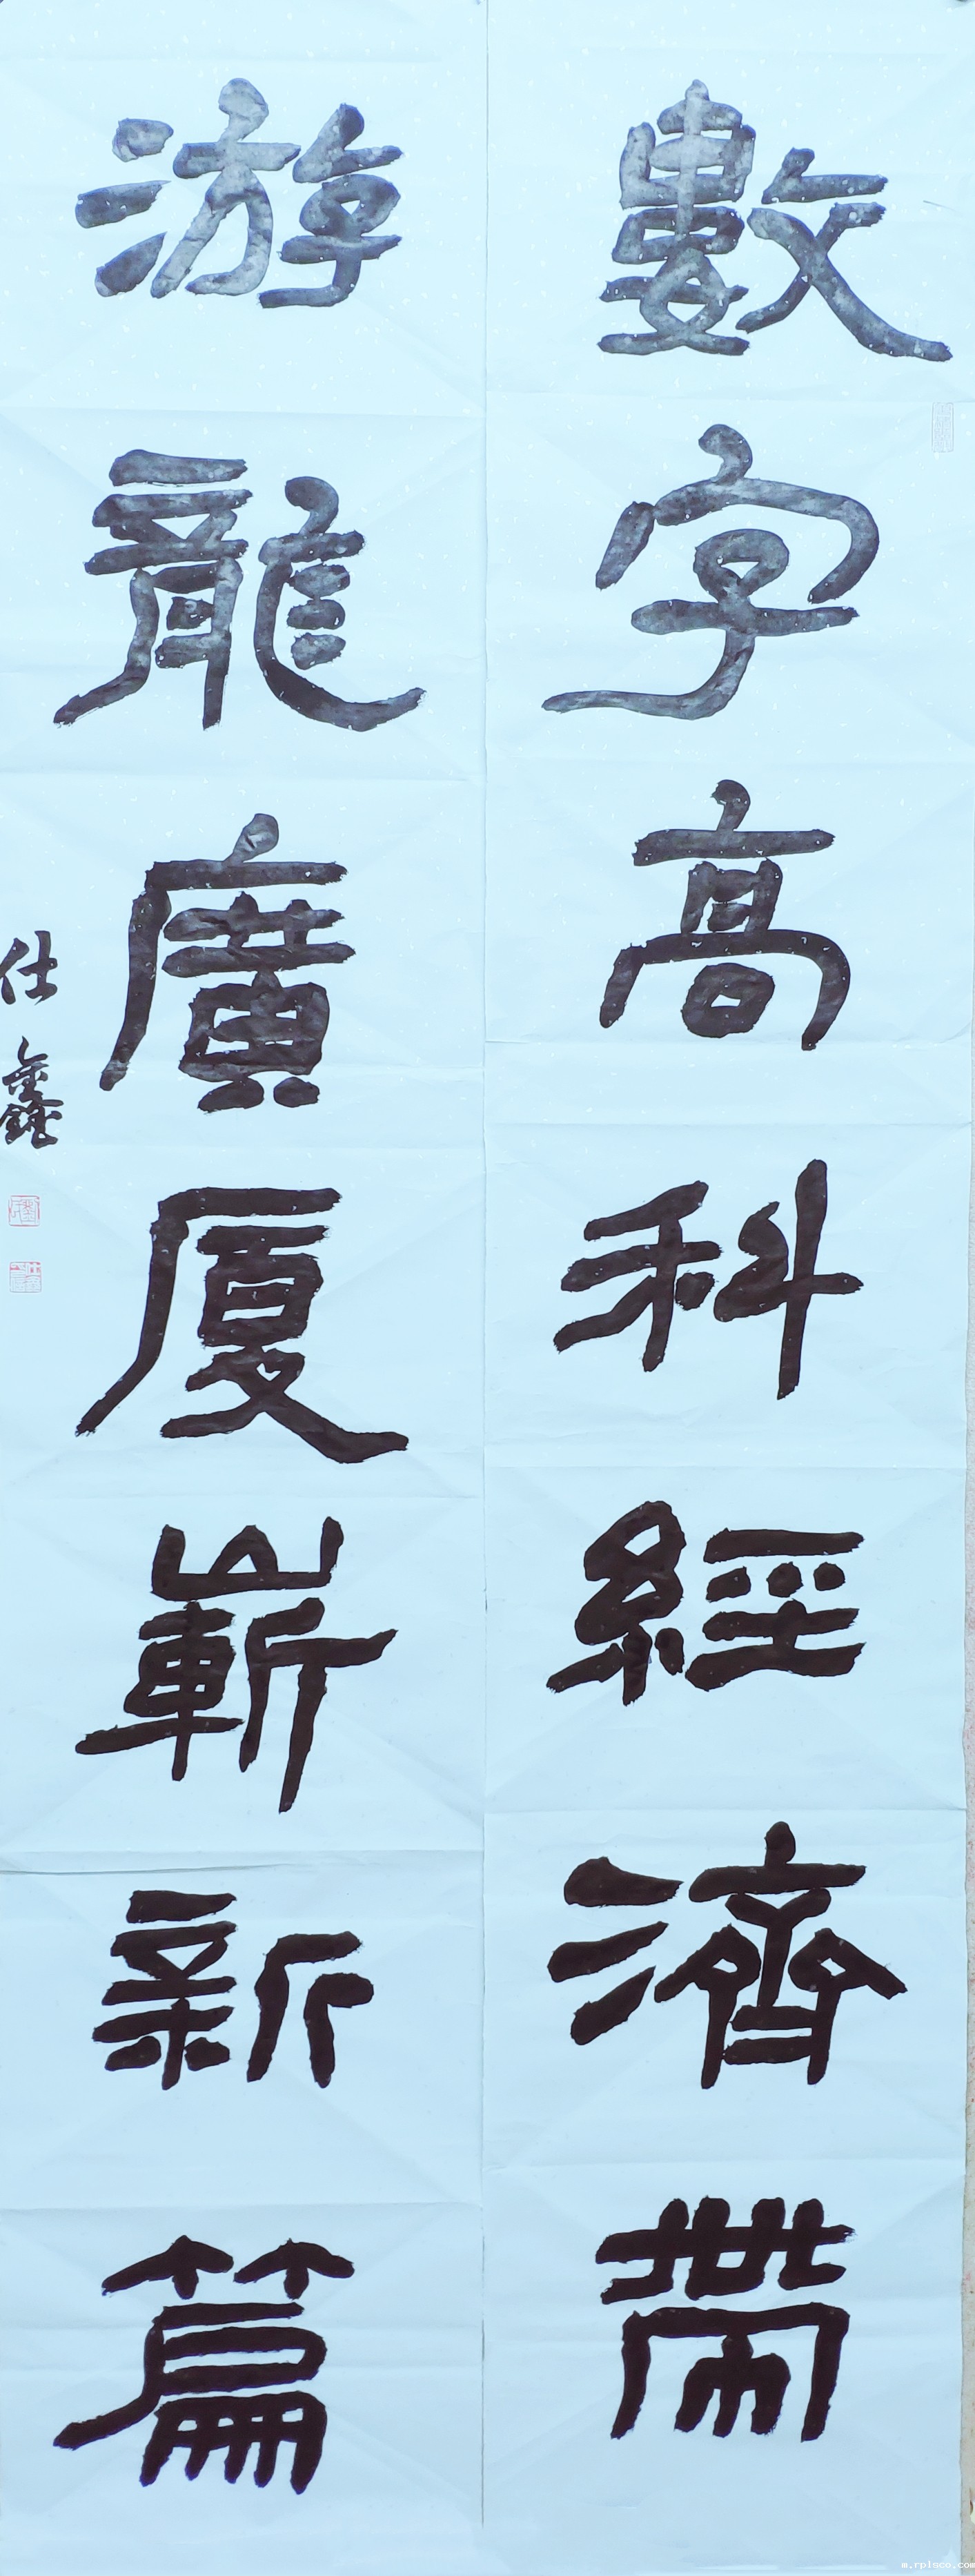 數字高科經濟帶
游龍廣厦嶄新篇
仕鑫
m.rplsco.com